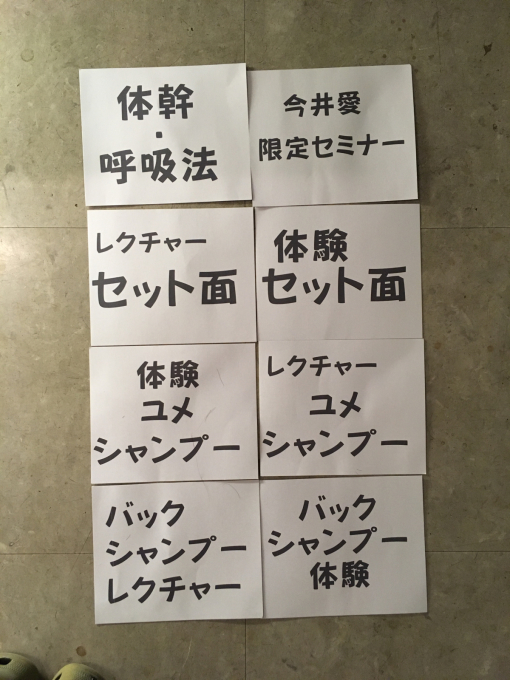 体幹
・
呼吸法
今井愛
限定セミナー
レクチャー
セット面
体験
セット面
体験
ユメ
シャンプー
レクチャー
ユメ
シャンプー
バック
シャンプー
レクチャー
バック
シャンプー
体験